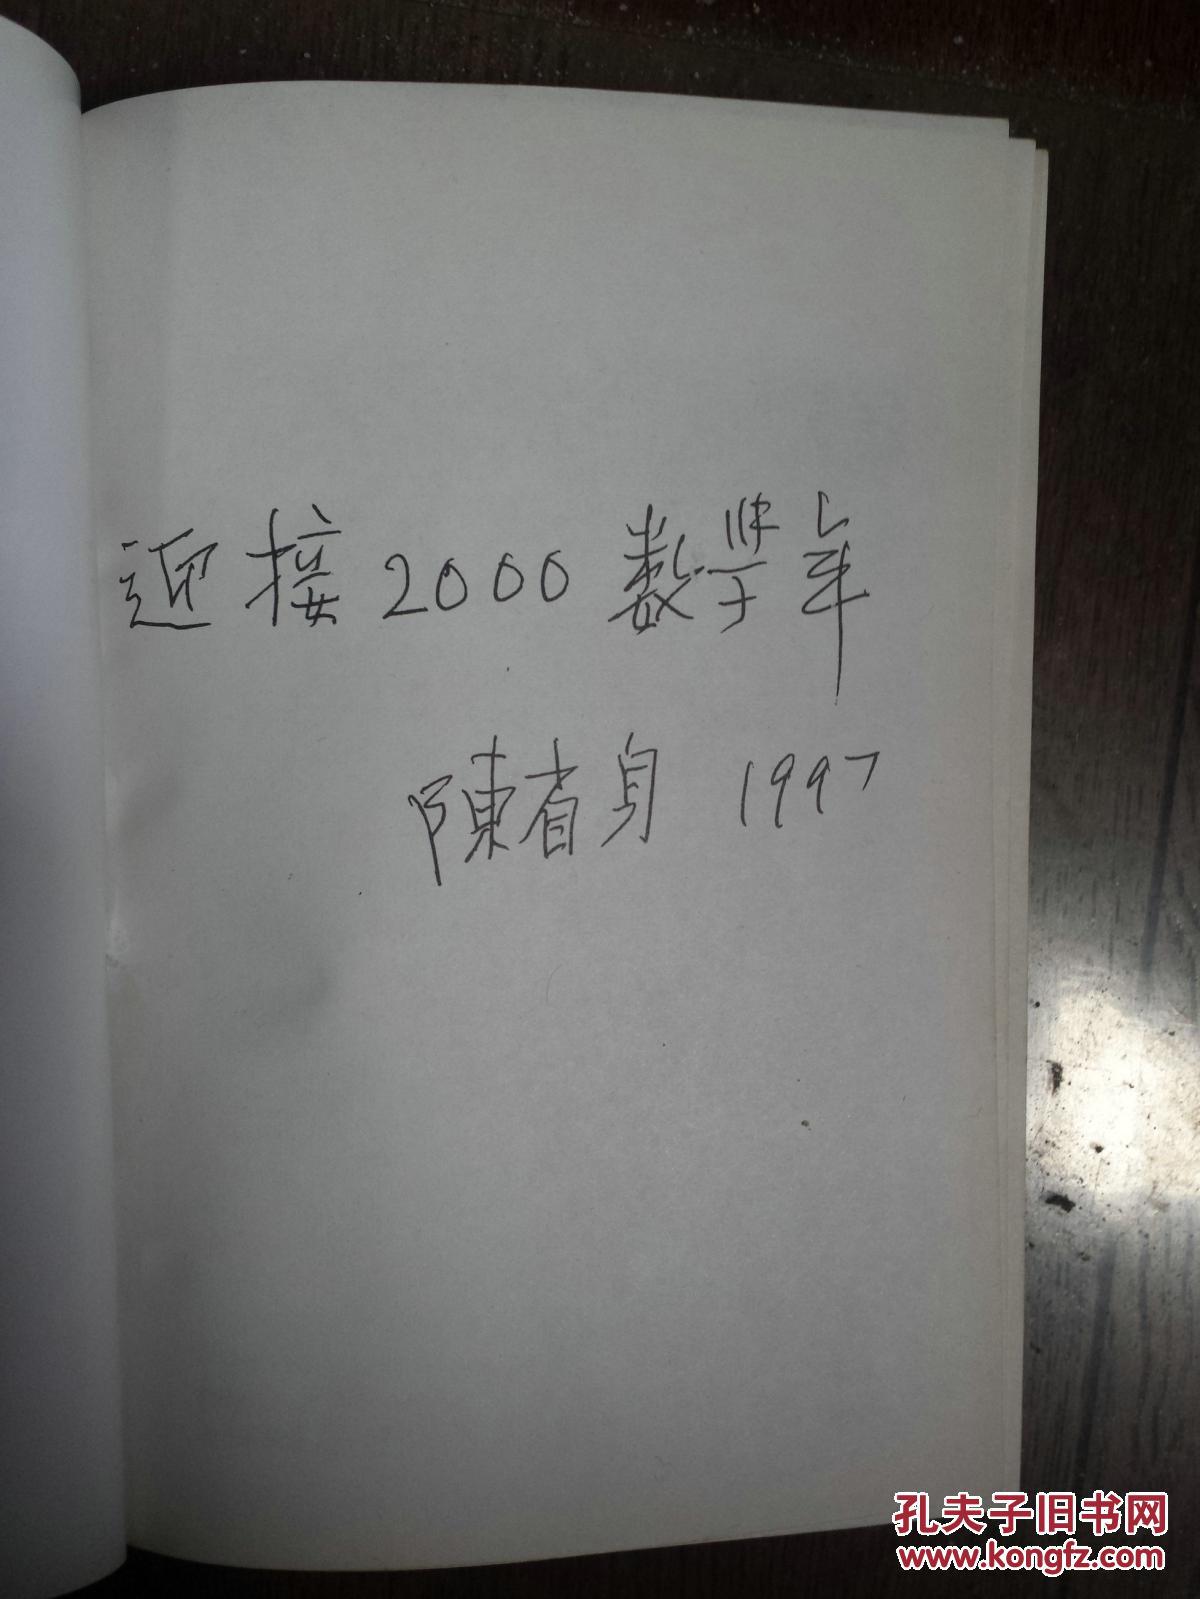 迎接2000数学年
陳省身 1997
孔夫子旧书网
www.kongfz.com